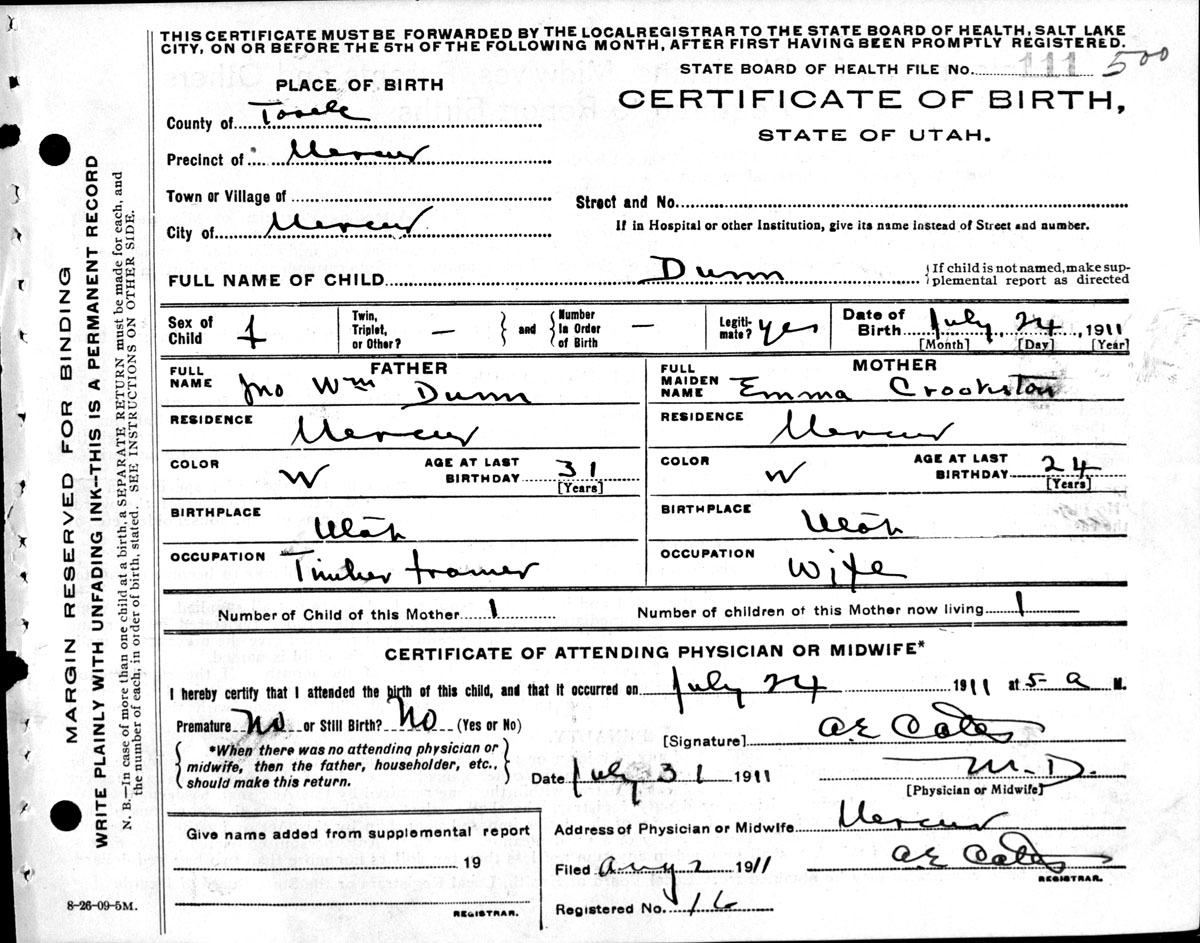 THIS CERTIFICATE MUST BE FORWARDED BY THE LOCAL REGISTRAR TO THE STATE BOARD OF HEALTH, SALT LAKE
CITY, ON OR BEFORE THE 5TH OF THE FOLLOWING MONTH, AFTER FIRST HAVING BEEN PROMPTLY REGISTERED.
STATE BOARD OF HEALTH FILE No. 111 500
PLACE OF BIRTH
CERTIFICATE OF BIRTH,
STATE OF UTAH.
County of Tooele
Precinct of Mercur
Town or Village of
Street and No.
City of Mercur
If in Hospital or other Institution, give its name instead of Street and number.
FULL NAME OF CHILD Dunn
If child is not named, make sup-
plemental report as directed
Sex of Child f
Twin, Triplet, or Other? —
and
Number in Order of Birth —
Legiti-mate? yes
Date of Birth July 24, 1911
[Month] [Day] [Year]
FATHER
FULL NAME Jno Wm Dunn
RESIDENCE Mercur
COLOR W AGE AT LAST BIRTHDAY 31
[Years]
BIRTHPLACE Utah
OCCUPATION Timber framer
MOTHER
FULL MAIDEN NAME Emma Crookston
RESIDENCE Mercur
COLOR W AGE AT LAST BIRTHDAY 24
[Years]
BIRTHPLACE Utah
OCCUPATION Wife
Number of Child of this Mother 1 Number of children of this Mother now living 1
CERTIFICATE OF ATTENDING PHYSICIAN OR MIDWIFE*
I hereby certify that I attended the birth of this child, and that it occurred on July 24 1911 at 5 a M.
Premature No or Still Birth? No (Yes or No)
[Signature] A.E. Coates
*When there was no attending physician or
midwife, then the father, householder, etc.,
should make this return.
Date July 31 1911
M.D.
[Physician or Midwife]
Give name added from supplemental report
19
REGISTRAR.
Address of Physician or Midwife Mercur
Filed Aug 2 1911 A E Coates
REGISTRAR.
Registered No. 16
8-26-09-5M.
MARGIN RESERVED FOR BINDING
WRITE PLAINLY WITH UNFADING INK--THIS IS A PERMANENT RECORD
N. B.—In case of more than one child at a birth, a SEPARATE RETURN must be made for each, and
the number of each, in order of birth, stated. SEE INSTRUCTIONS ON OTHER SIDE.